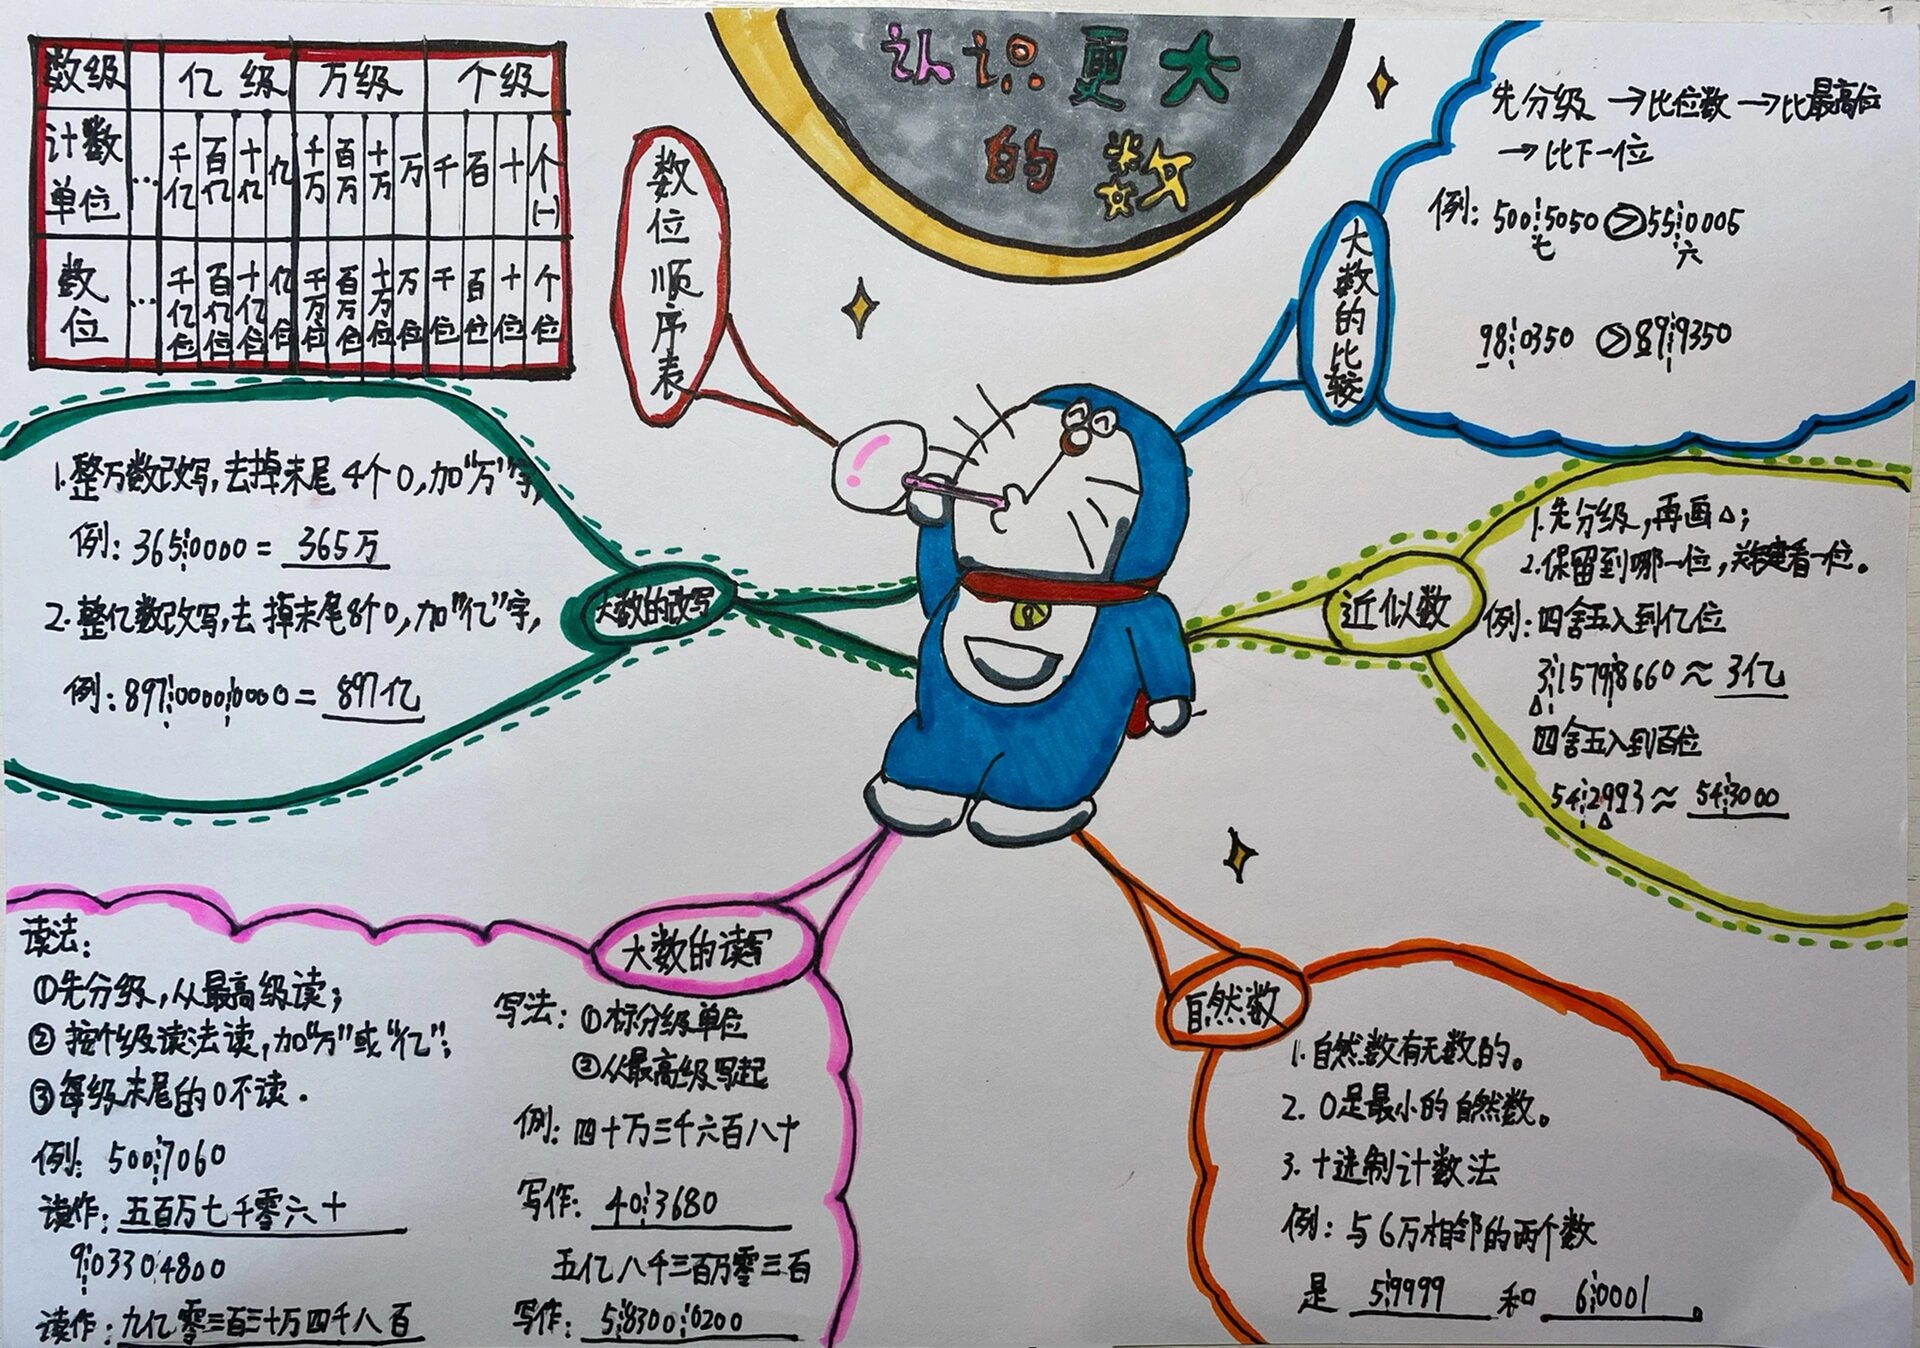 认识更大
的数
数级 亿级 万级 个级
计数单位 … 千亿 百亿 十亿 亿 千万 百万 十万 万 千 百 十 个(一)
数位 … 千亿位 百亿位 十亿位 亿位 千万位 百万位 十万位 万位 千位 百位 十位 个位
数位顺序表
大数的比较
先分级→比位数→比最高位
→比下一位
例:500¦5050>55¦0005
七 六
98¦0350>89¦9350
大数的改写
1.整万数改写,去掉末尾4个0,加"万"字,
例:365¦0000=365万
2.整亿数改写,去掉末尾8个0,加"亿"字,
例:897¦0000¦0000=897亿
近似数
1.先分级,再画△;
2.保留到哪一位,关键看一位。
例:四舍五入到亿位
3¦1579¦8660≈3亿
△
四舍五入到百位
54¦2993≈54¦3000
△
大数的读写
读法:
①先分级,从最高级读;
②按个级读法读,加"万"或"亿";
③每级末尾的0不读.
例:500¦7060
读作:五百万七千零六十
9¦0330¦4800
读作:九亿零三百三十万四千八百
写法:①标分级单位
②从最高级写起
例:四十万三千六百八十
写作:40¦3680
五亿八千三百万零三百
写作:5¦8300¦0200
自然数
1.自然数有无数的。
2.0是最小的自然数。
3.十进制计数法
例:与6万相邻的两个数
是 5¦9999 和 6¦0001。